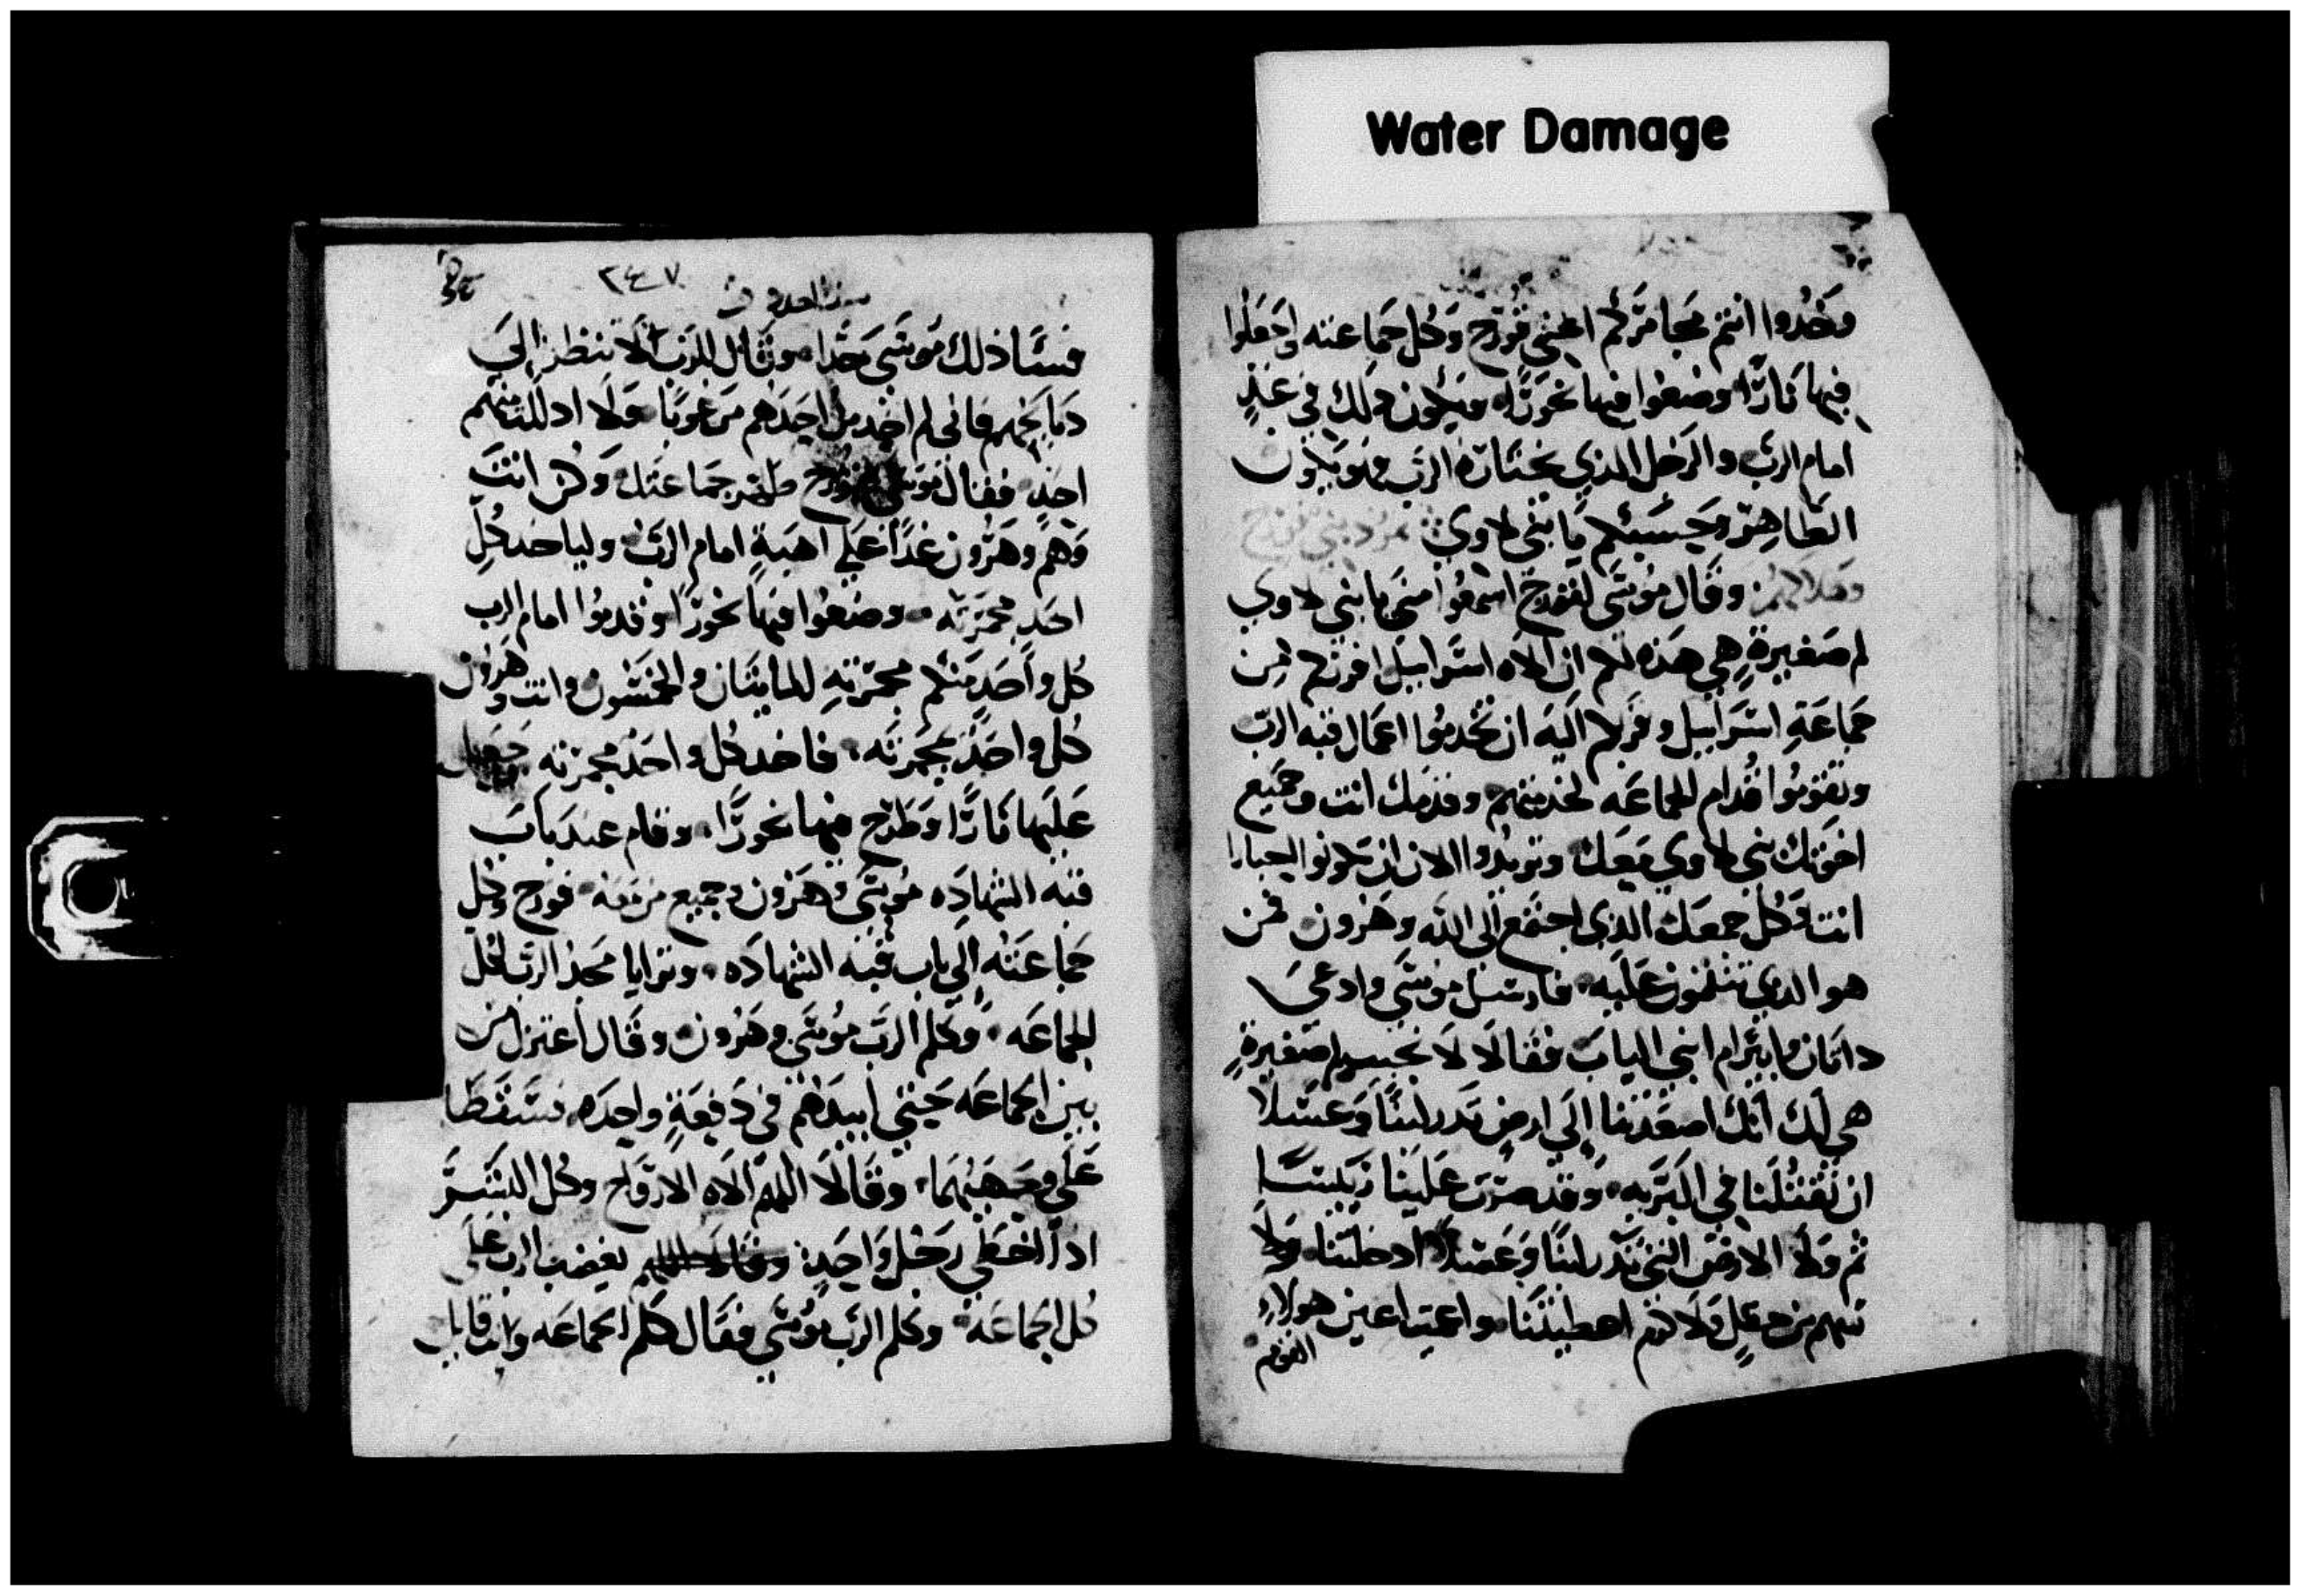 Water Damage
وخدوا انتم مجامركم اعني قورح وكل جماعته اجعلوا
فيها نارا وضعوا فيها بخورا ويكون ذلك في غد
امام الرب والرجل الدي يختاره الرب هو يكون
الطاهر وحسبكم يا بني لاوي تمرد بني قورح
وقال موسى لقورح اسمعوا مني يا بني لاوي
لم صغيرة هي هذه لكم ان الاه اسراييل افرزكم من
جماعة اسراييل وقربكم اليه ان تخدموا اعمال قبه الرب
وتقوموا قدام الجماعه لخدمتهم وقدمك انت وجميع
اخوتك بني لاوي معك وتريدوا الان ان تكونوا احبارا
انت وكل جمعك الدي اجتمع الى الله وهرون فمن
هو الدي تتقمقمون عليه فارسل موسى وادعى
داتان وابيرام ابني الياب فقالا لا نجي لم صغيرة
هي لك انك اصعدتنا الي ارض تدر لبنا وعسلا
ان تقتلنا في البريه وقد صرت علينا رييسا
ثم ولا الارض التي تدر لبنا وعسلا ادخلتنا ولا
سهم من حقل ولا كرم اعطيتنا واعين هولاء
القوم
٢٤٧
فسا ذلك موسى جدا وقال للرب لا تنظر الي
دبايحهم فاني لم اخد من احدهم مرغوبا ولا ادللت منهم
احد فقال موسى لقورح طهر جماعتك وكن انت
وهم وهرون غدا على اهبة امام الرب ولياخد كل
احد مجمرته وضعوا فيها بخورا وقدموا امام الرب
كل واحد منكم مجمرته المايتان والخمسون وانت وهرون
كل واحد مجمرته فاخد كل واحد مجمرته
عليها نارا وطرح فيها بخورا وقام عند باب
قبه الشهاده موسى وهرون وجميع من معه قورح وكل
جماعته الي باب قبه الشهاده وترايا مجد الرب لكل
الجماعه وكلم الرب موسى وهرون وقال اعتزلا من
بين الجماعه حيتي ابيدهم في دفعة واحده فسقطا
على وجههما وقالا اللهم الاه الارواح وكل البشر
ادا اخطى رجل واحد يغضب الرب على
كل الجماعه وكلم الرب موسى فقال كلم الجماعه